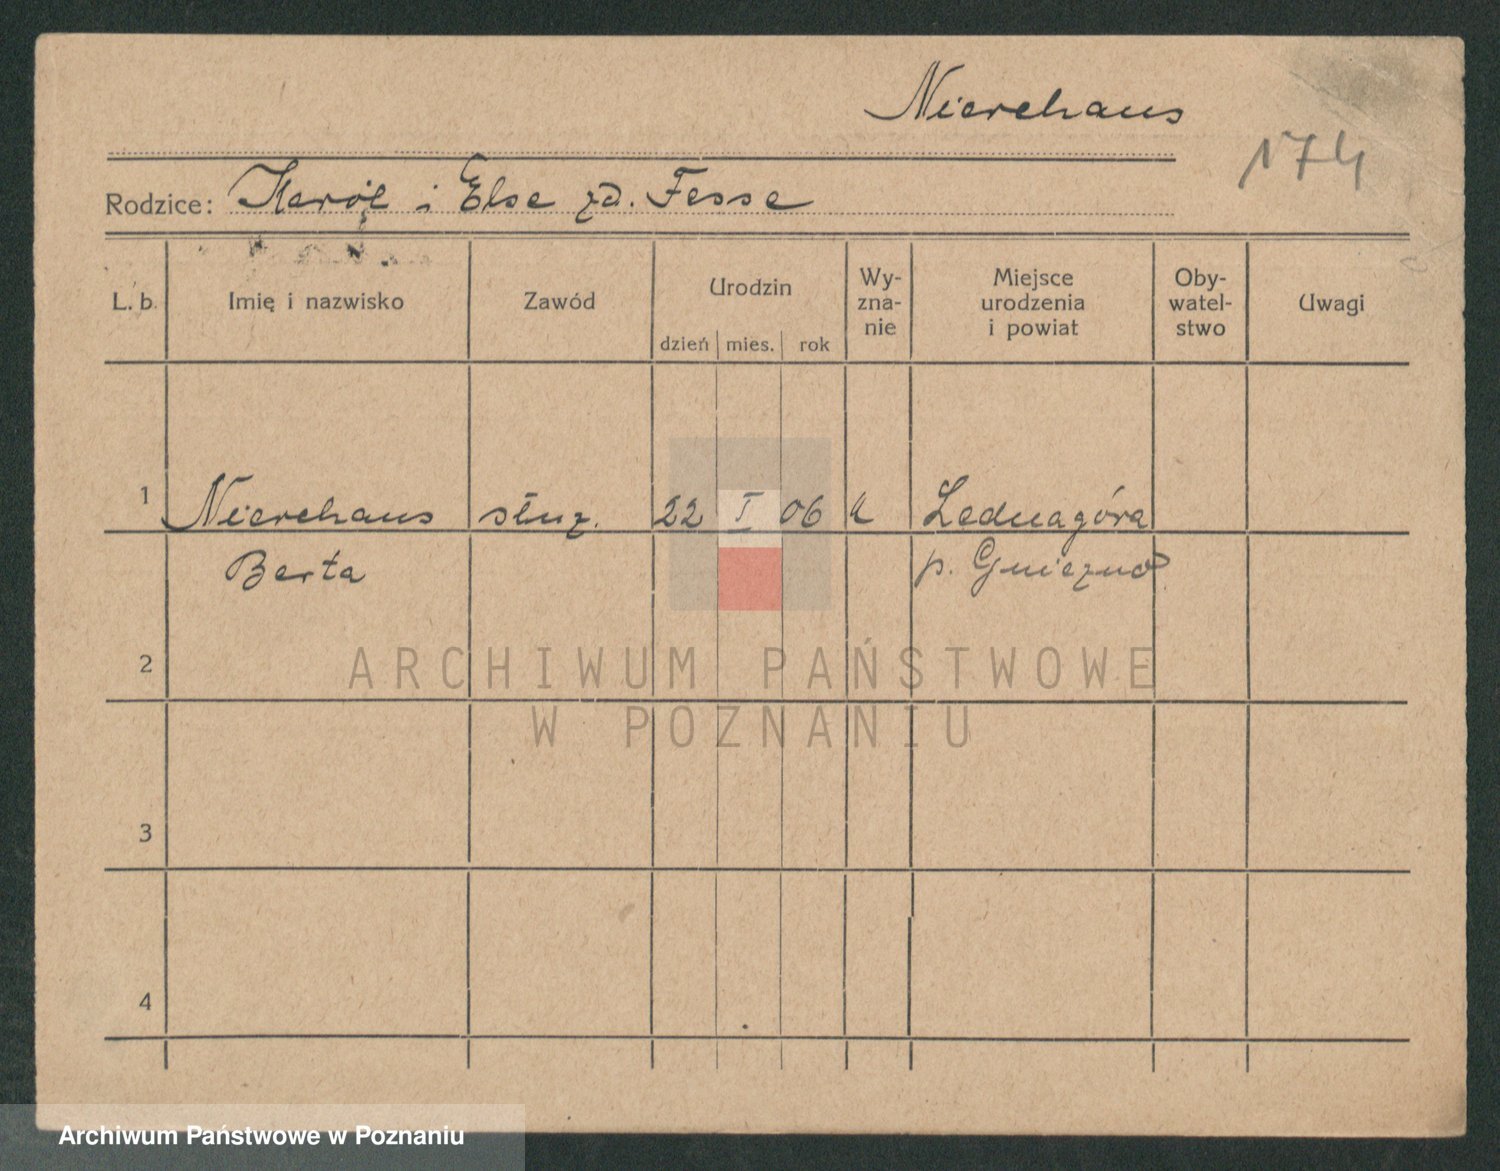 Nierehaus
174
Rodzice: Karol i Else zd. Fesse
L. b. Imię i nazwisko Zawód Urodzin dzień mies. rok Wy-zna-nie Miejsce urodzenia i powiat Oby-watel-stwo Uwagi
1 Nierehaus służ. 22 I 06 k Lednagóra
Berta p. Gniezno
2
ARCHIWUM PAŃSTWOWE
W POZNANIU
3
4
Archiwum Państwowe w Poznaniu